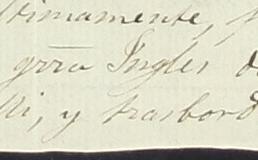 ltimamente,
grra Ingles
i, y trasbord